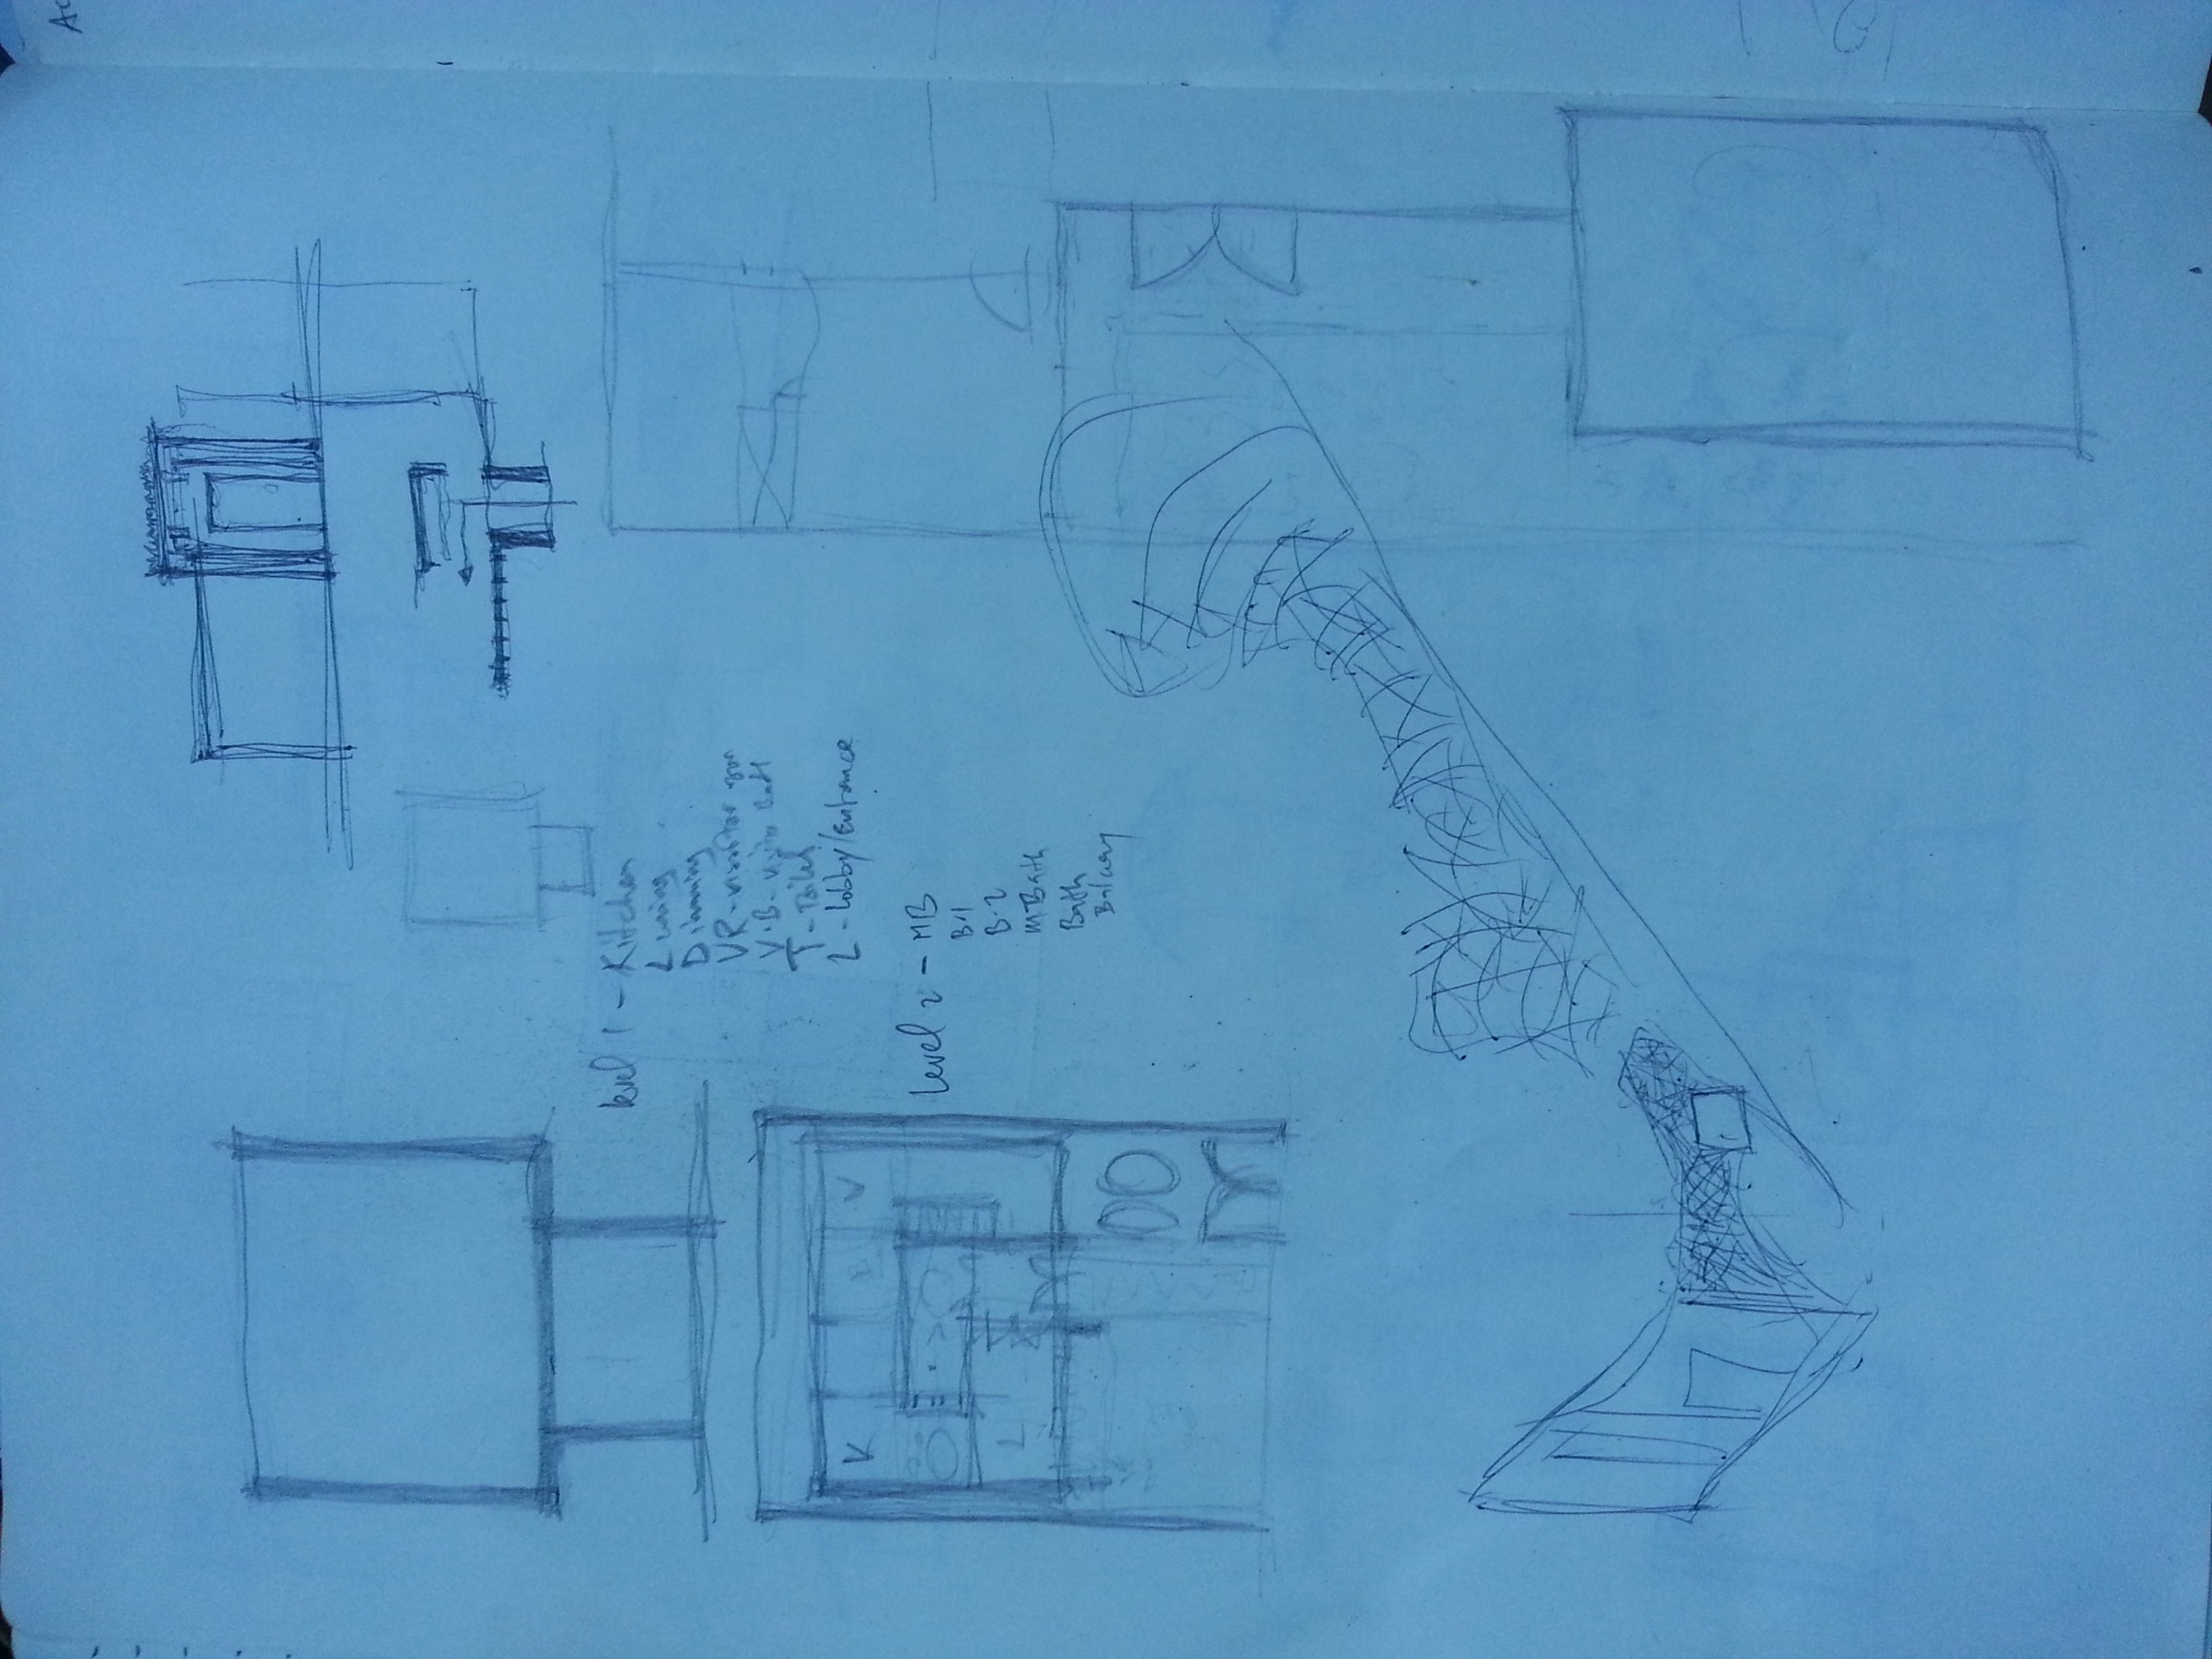 level 1 - Kitchen
Living
Dinning
VR - visitor room
V.B - visito Bath
T - Toilet
L - Lobby/Entrance
level 2 - MB
B-1
B-2
M-Bath
Bath
Balcony
V
K
L